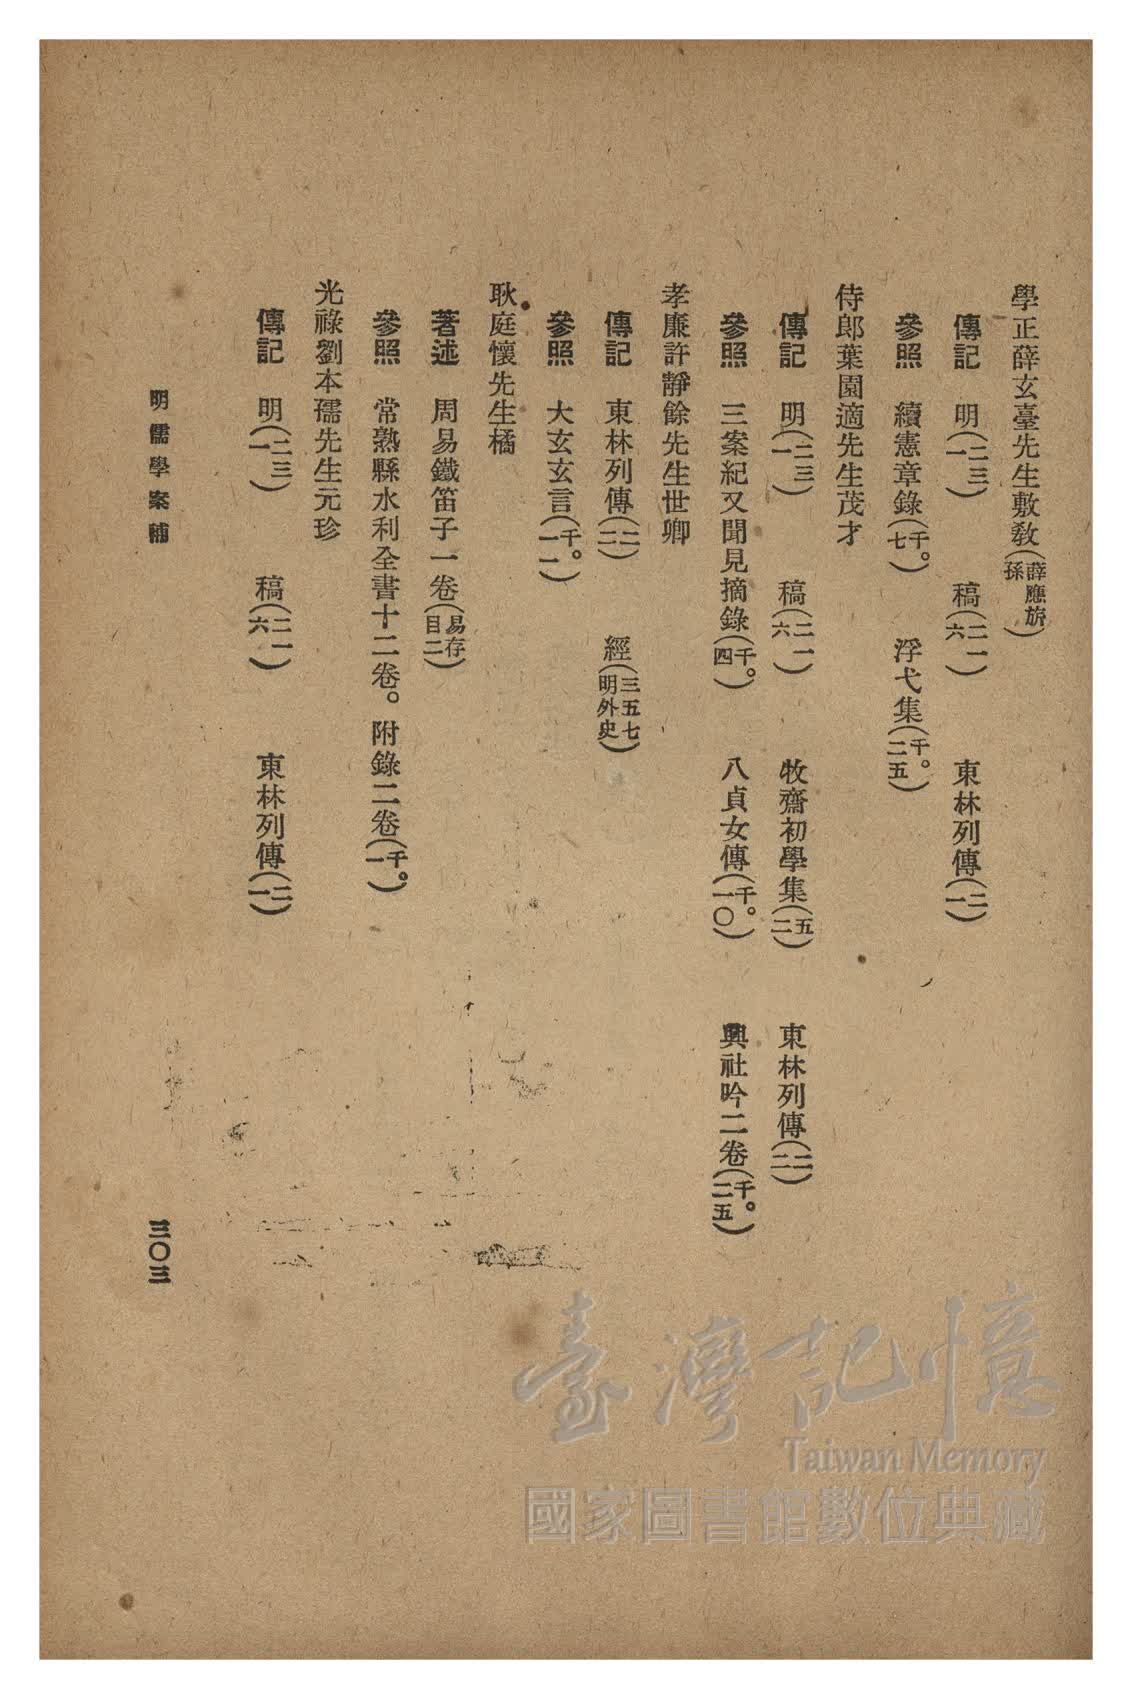 學正薛玄臺先生敷敎(薛應旂孫)
傳記 明(二三一) 稿(二一六) 東林列傳(二一)
參照 續憲章錄(千。七) 浮弋集(千。二五)
侍郎葉園適先生茂才
傳記 明(二三一) 稿(二一六) 牧齋初學集(五二) 東林列傳(二二)
參照 三案紀又聞見摘錄(千。四) 八貞女傳(千。一〇) 興社吟二卷(千。二五)
孝廉許靜餘先生世卿
傳記 東林列傳(二二) 經(三五七明外史)
參照 大玄玄言(千。一一)
耿庭懷先生橘
著述 周易鐵笛子一卷(易存目二)
參照 常熟縣水利全書十二卷。附錄二卷(千。一)
光祿劉本孺先生元珍
傳記 明(二三一) 稿(二一六) 東林列傳(二一)
明儒學案補
三〇三
臺灣記憶
Taiwan Memory
國家圖書館數位典藏